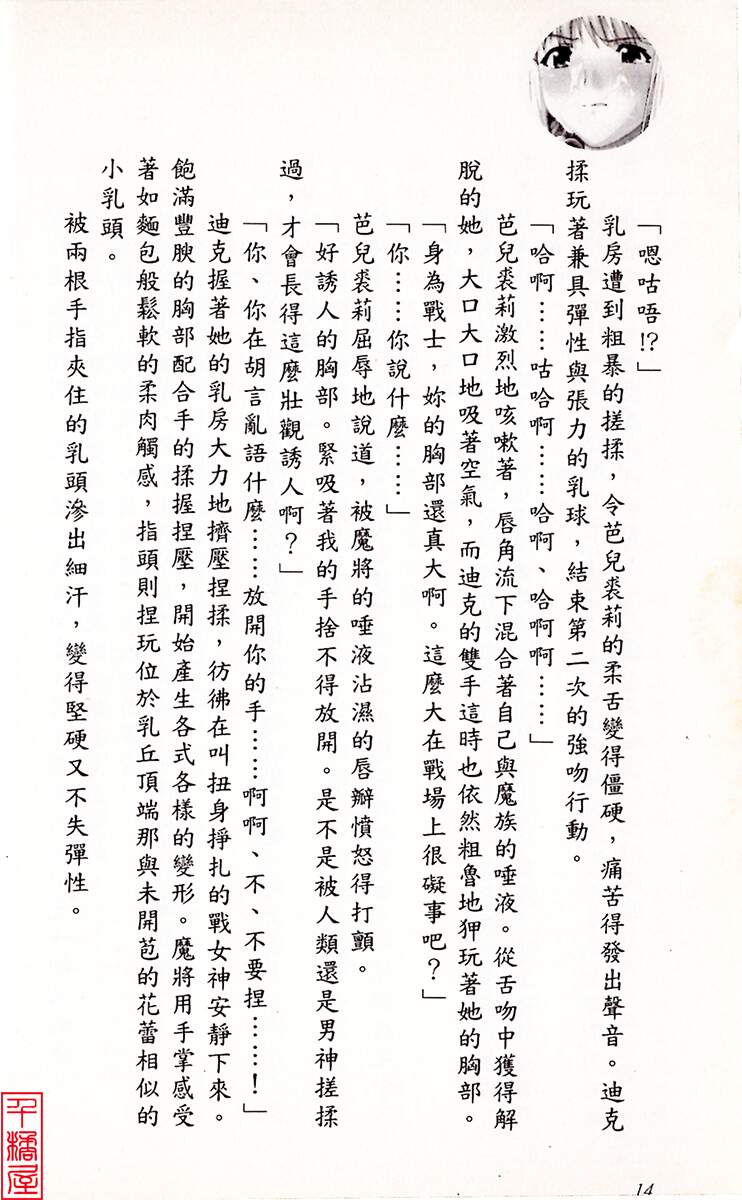 「嗯咕唔!?」
乳房遭到粗暴的搓揉，令芭兒裘莉的柔舌變得僵硬，痛苦得發出聲音。迪克
揉玩著兼具彈性與張力的乳球，結束第二次的強吻行動。
「哈啊……咕哈啊……哈啊、哈啊啊……」
芭兒裘莉激烈地咳嗽著，唇角流下混合著自己與魔族的唾液。從舌吻中獲得解
脫的她，大口大口地吸著空氣，而迪克的雙手這時也依然粗魯地狎玩著她的胸部。
「身為戰士，妳的胸部還真大啊。這麼大在戰場上很礙事吧？」
「你……你說什麼……」
芭兒裘莉屈辱地說道，被魔將的唾液沾濕的唇瓣憤怒得打顫。
「好誘人的胸部。緊吸著我的手捨不得放開。是不是被人類還是男神搓揉
過，才會長得這麼壯觀誘人啊？」
「你、你在胡言亂語什麼……放開你的手……啊啊、不、不要捏……！」
迪克握著她的乳房大力地擠壓捏揉，彷彿在叫扭身掙扎的戰女神安靜下來。
飽滿豐腴的胸部配合手的揉握捏壓，開始產生各式各樣的變形。魔將用手掌感受
著如麵包般鬆軟的柔肉觸感，指頭則捏玩位於乳丘頂端那與未開苞的花蕾相似的
小乳頭。
被兩根手指夾住的乳頭滲出細汗，變得堅硬又不失彈性。
14
千橘屋